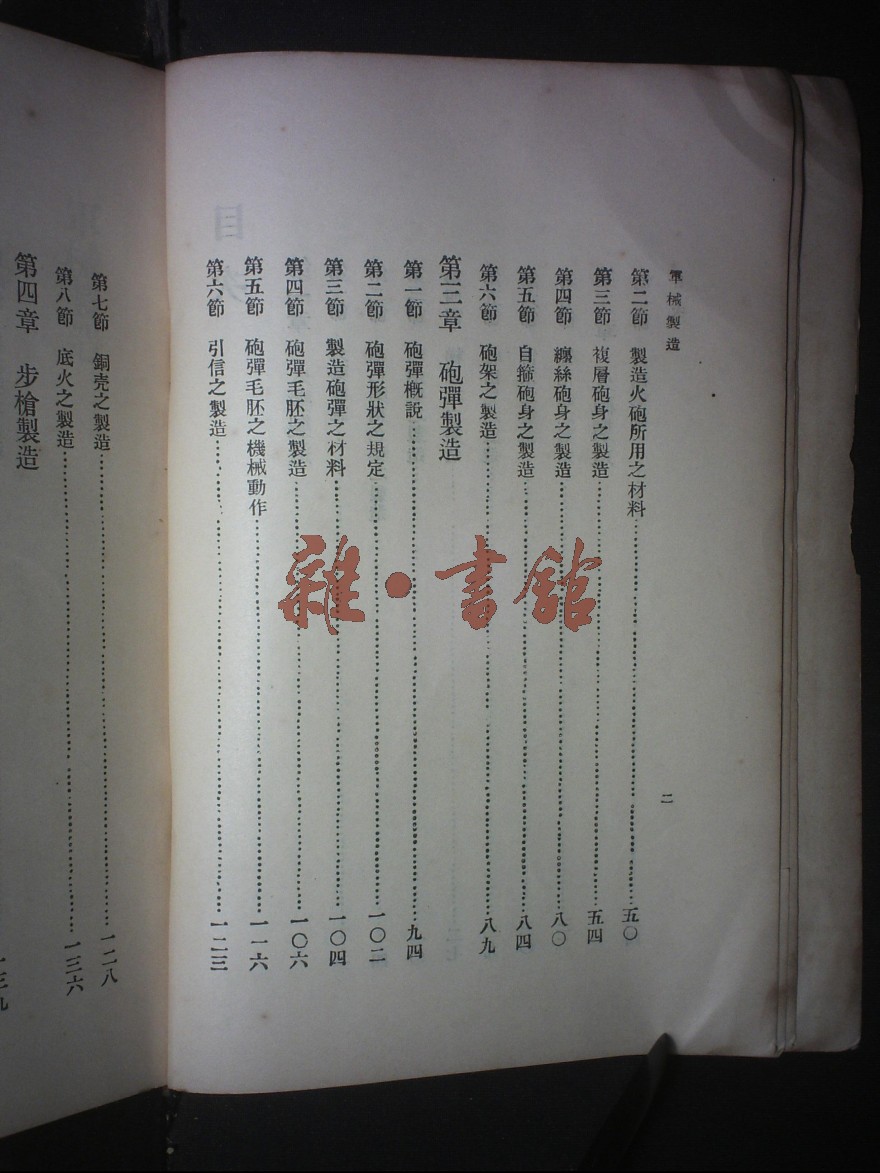 軍械製造
二
第二節 製造火砲所用之材料 五〇
第三節 複層砲身之製造 五四
第四節 纏絲砲身之製造 八〇
第五節 自箍砲身之製造 八四
第六節 砲架之製造 八九
第三章 砲彈製造
第一節 砲彈概説 九四
第二節 砲彈形狀之規定 一〇二
第三節 製造砲彈之材料 一〇四
第四節 砲彈毛胚之製造 一〇六
第五節 砲彈毛胚之機械動作 一一六
第六節 引信之製造 一二三
第七節 銅壳之製造 一二八
第八節 底火之製造 一三六
第四章 步槍製造
一三九
雜·書館